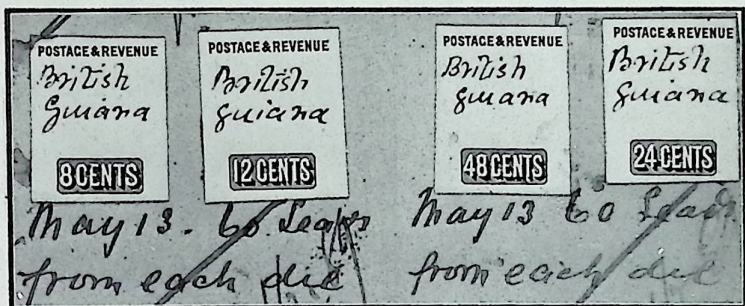 POSTAGE & REVENUE
British
Guiana
8 CENTS
POSTAGE & REVENUE
British
Guiana
12 CENTS
POSTAGE & REVENUE
British
Guiana
48 CENTS
POSTAGE & REVENUE
British
Guiana
24 CENTS
May 13. 60 Leads
from each die
May 13 60 Leads
from each die